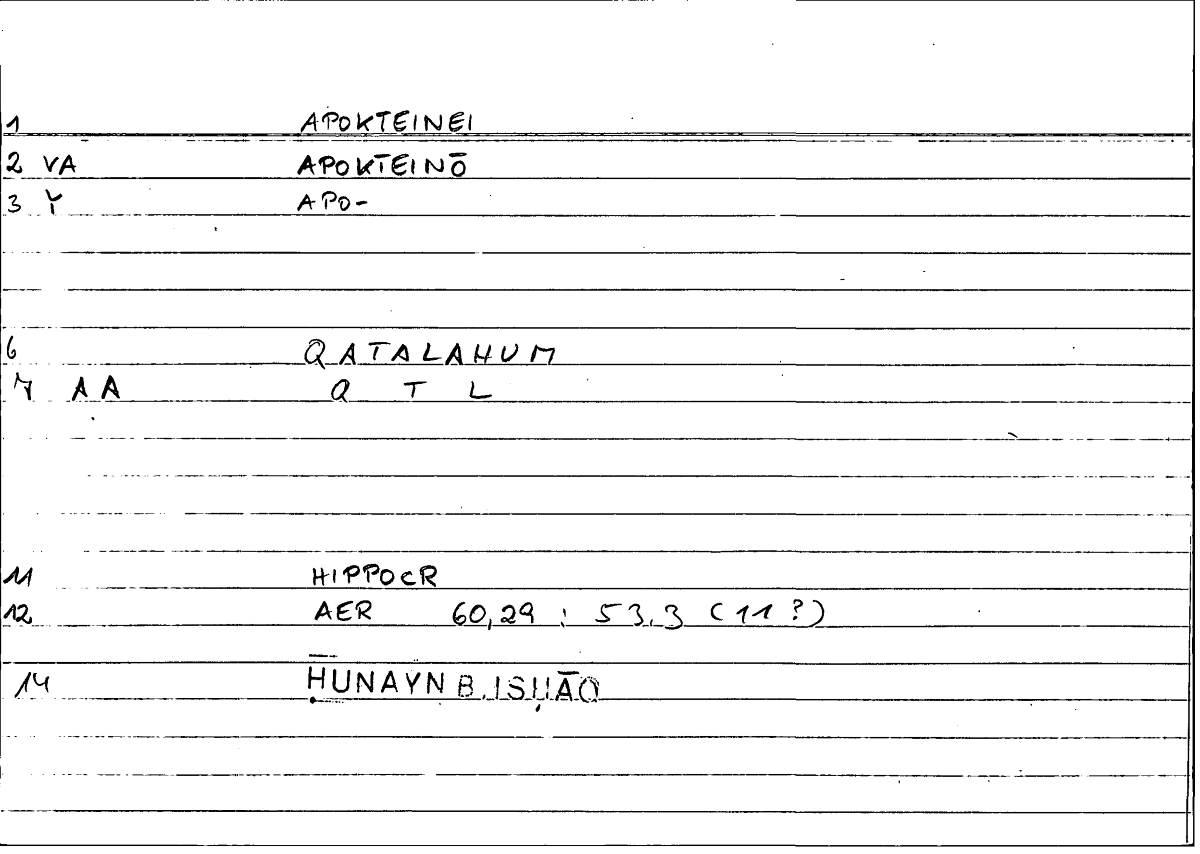 1 APOKTEINEI
2 VA APOKTEINŌ
3 Y APO-
6 QATALAHUM
7 AA Q T L
11 HIPPOCR
12 AER 60,29 : 53,3 (11?)
14 ḤUNAYN B. ISḤĀQ